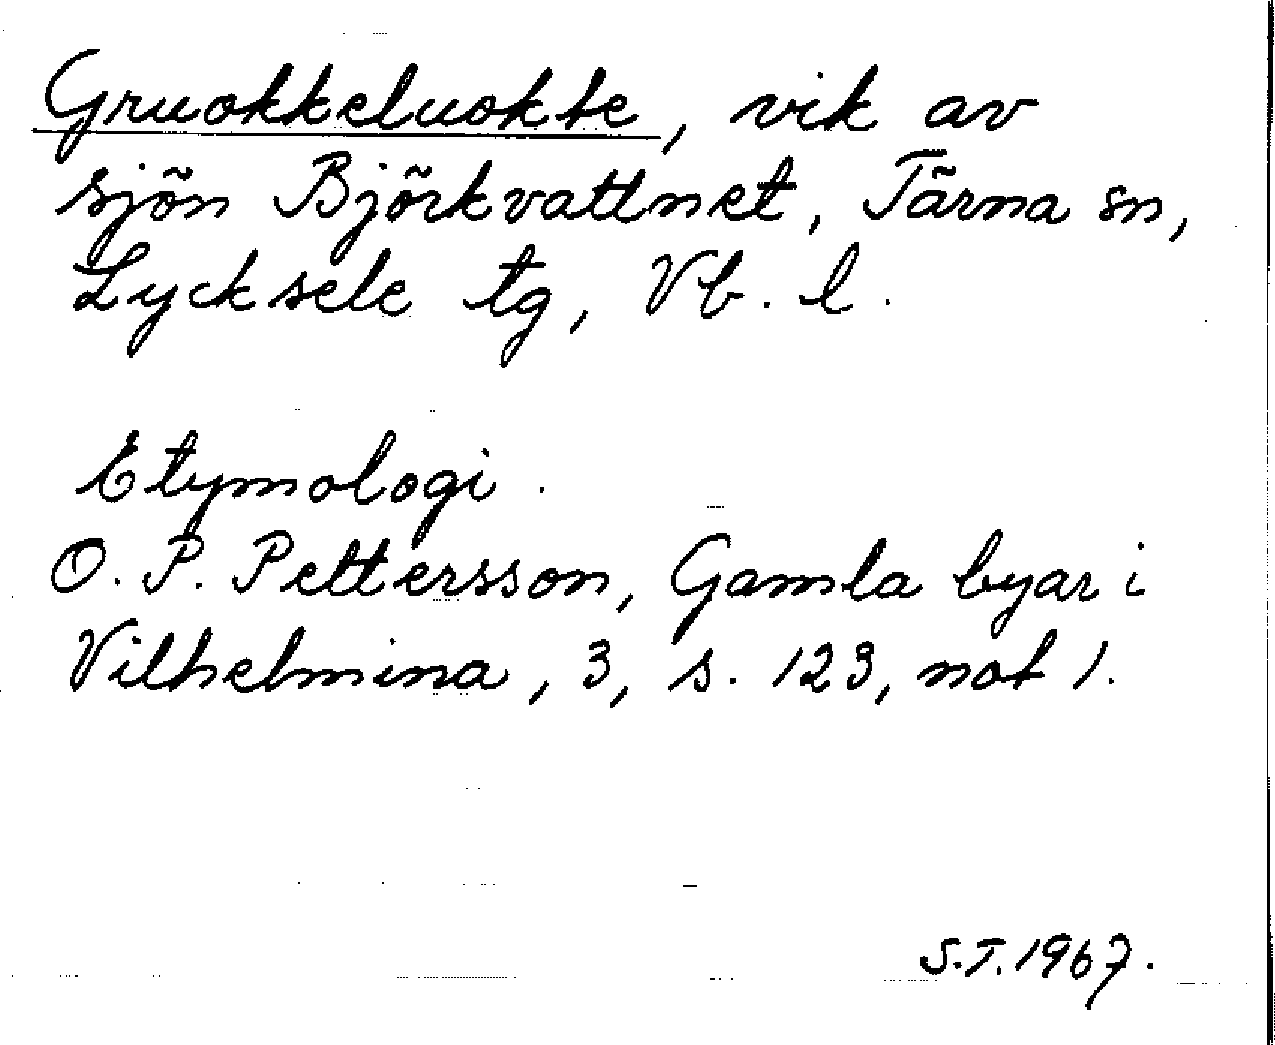 Gruokkeluokte, vik av
sjön Björkvattnet, Tärna sn,
Lycksele tg, Vb. l.
Etymologi.
O. P. Pettersson, Gamla byar i
Vilhelmina, 3, s. 123, not 1.
S.T. 1967.